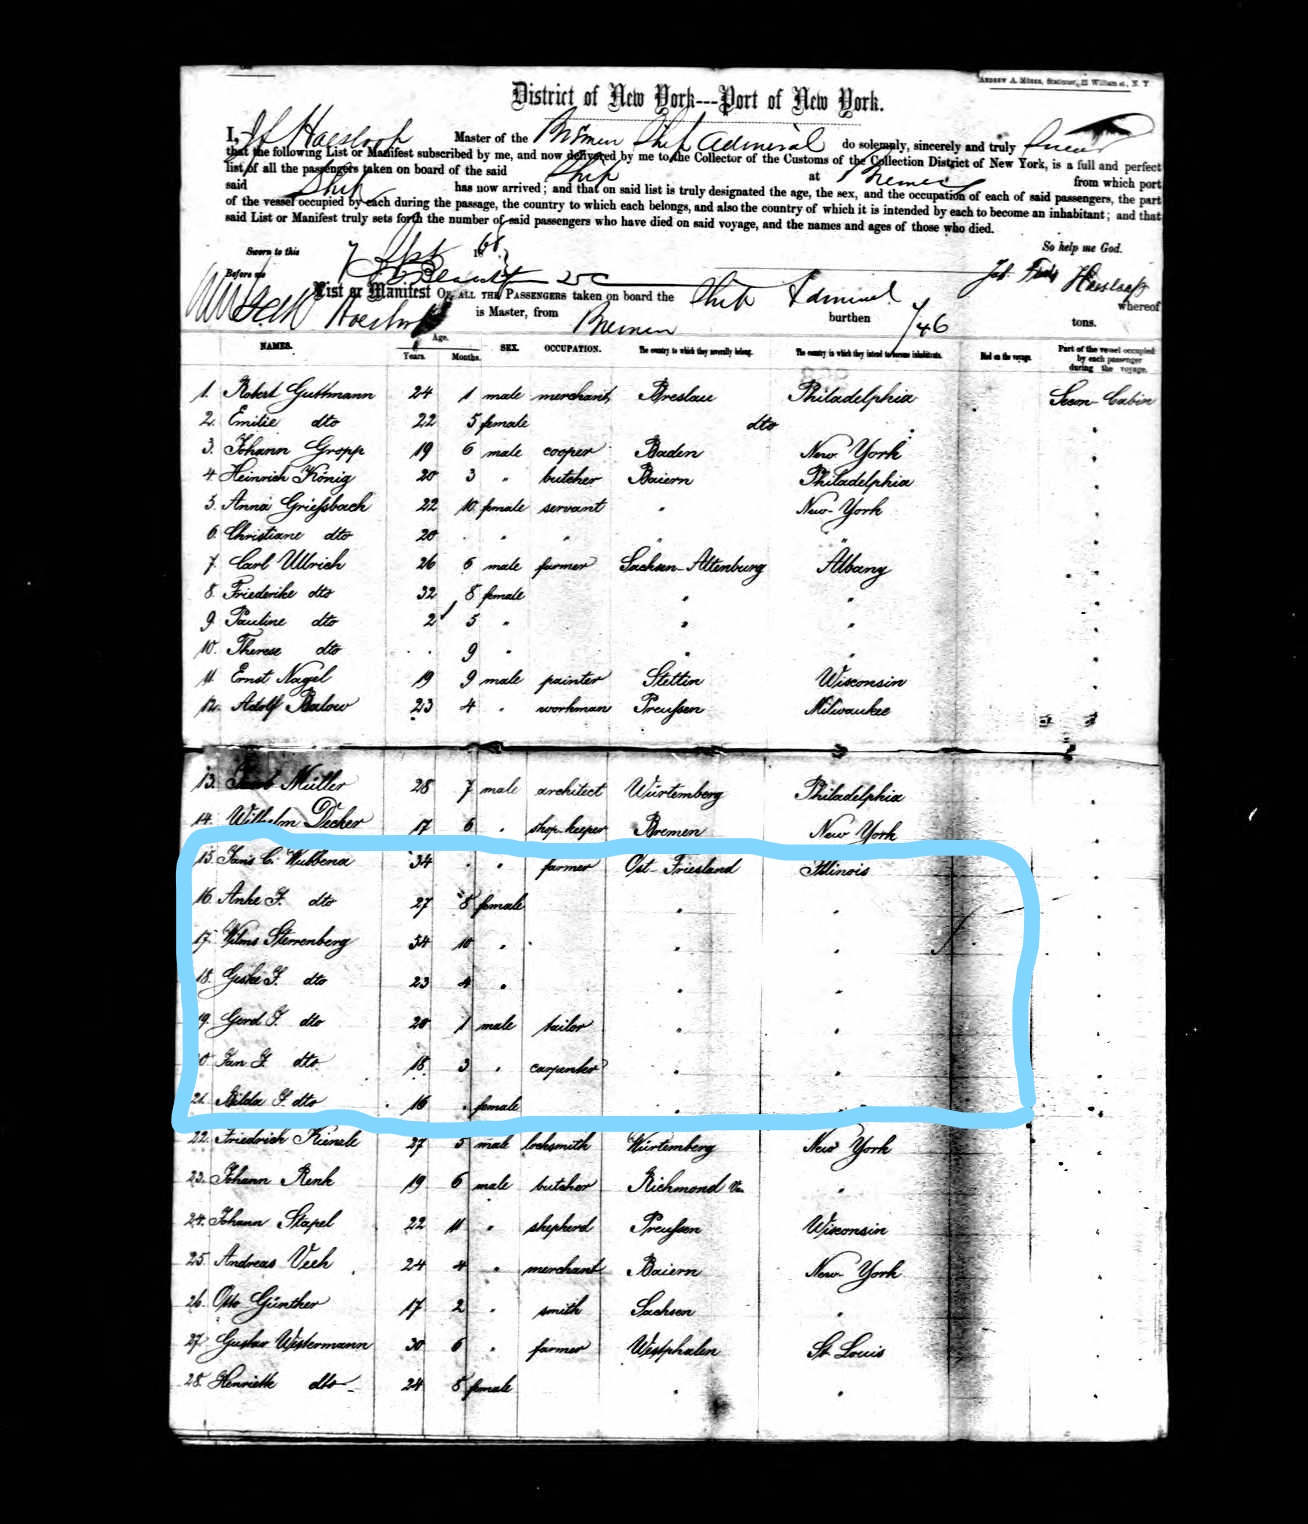 ANDREW A. MOSES, Stationer, William st., N. Y
District of New York---Port of New York.
I, Haesloop Master of the Bremen Ship Admiral do solemnly, sincerely and truly
that the following List or Manifest subscribed by me, and now delivered by me to the Collector of the Customs of the Collection District of New York, is a full and perfect
list of all the passengers taken on board of the said Ship at Bremen from which port
said Ship has now arrived; and that on said list is truly designated the age, the sex, and the occupation of each of said passengers, the part
of the vessel occupied by each during the passage, the country to which each belongs, and also the country of which it is intended by each to become an inhabitant; and that
said List or Manifest truly sets forth the number of said passengers who have died on said voyage, and the names and ages of those who died.
Sworn to this 7 Sept 1868 So help me God.
Before me Haesloop
List or Manifest OF ALL THE PASSENGERS taken on board the Ship Admiral whereof
Haesloop is Master, from Bremen burthen 746 tons.
NAMES. Age. Years. Months. SEX. OCCUPATION. The country to which they severally belong. The country in which they intend to become inhabitants. Died on the voyage. Part of the vessel occupied by each passenger during the voyage.
1. Robert Guttmann 24 1 male merchant Breslau Philadelphia Secon-Cabin
2. Emilie dto 22 5 female dto "
3. Johann Gropp 19 6 male cooper Baden New York "
4. Heinrich König 20 3 " butcher Baiern Philadelphia "
5. Anna Grießbach 22 10 female servant " New-York "
6. Christiane dto 20 . " " " " "
7. Carl Ullrich 26 6 male farmer Sachsen-Altenburg Albany "
8. Friederike dto 32 8 female " " "
9. Pauline dto 2 5 " " " "
10. Therese dto . 9 " " " "
11. Ernst Nagel 19 9 male painter Stettin Wisconsin "
12. Adolf Balow 23 4 " workman Preußen Milwaukee "
13. Müller 28 7 male architect Würtemberg Philadelphia "
14. Wilhelm Decker 17 6 " shop-keeper Bremen New York "
15. Jans C. Wubbena 34 . " farmer Ost-Friesland Illinois "
16. Anke J. dto 27 8 female " " "
17. Wilms Sterrenberg 54 10 " " " "
18. Geske J. dto 23 4 " " " "
19. Gerd J. dto 20 1 male tailor " " "
20. Jan J. dto 18 3 " carpenter " " "
21. Hilda J. dto 16 . female " " "
22. Friedrich Kienzle 27 5 male locksmith Würtemberg New York "
23. Johann Renk 19 6 male butcher Richmond Va. " "
24. Johann Stapel 22 11 " shepherd Preußen Wisconsin "
25. Andreas Veeh 24 4 " merchant Baiern New York "
26. Otto Günther 17 2 " smith Sachsen " "
27. Gustav Westermann 30 6 " farmer Westphalen St Louis "
28. Henriette dto 24 8 female " " "